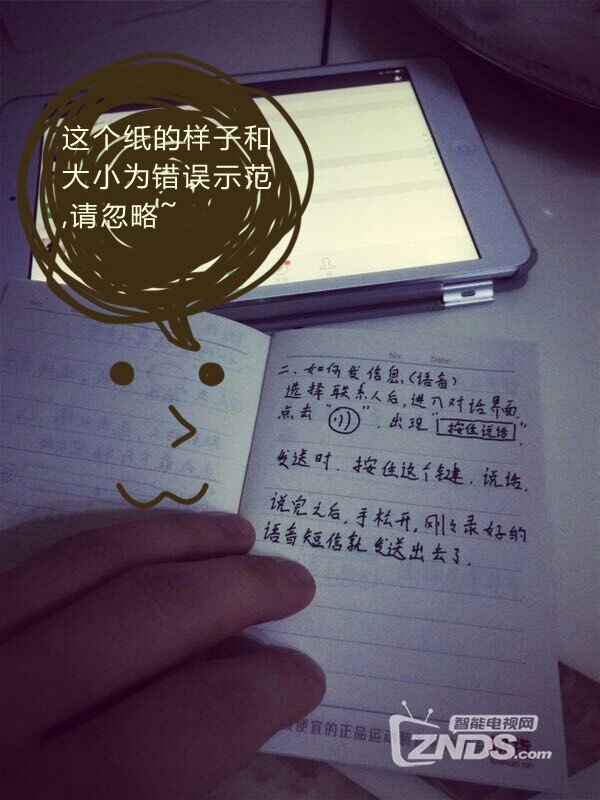 这个纸的样子和
大小为错误示范
,请忽略~
No:
No: Date:
二、如何发信息(语音)
选择联系人后,进入对话界面
点击“ ”,出现“按住说话”.
发送时.按住这个键.说话.
说完之后,手松开,刚々录好的
语音短信就发送出去了.
便宜的正品运动
智能电视网
ZNDS.com